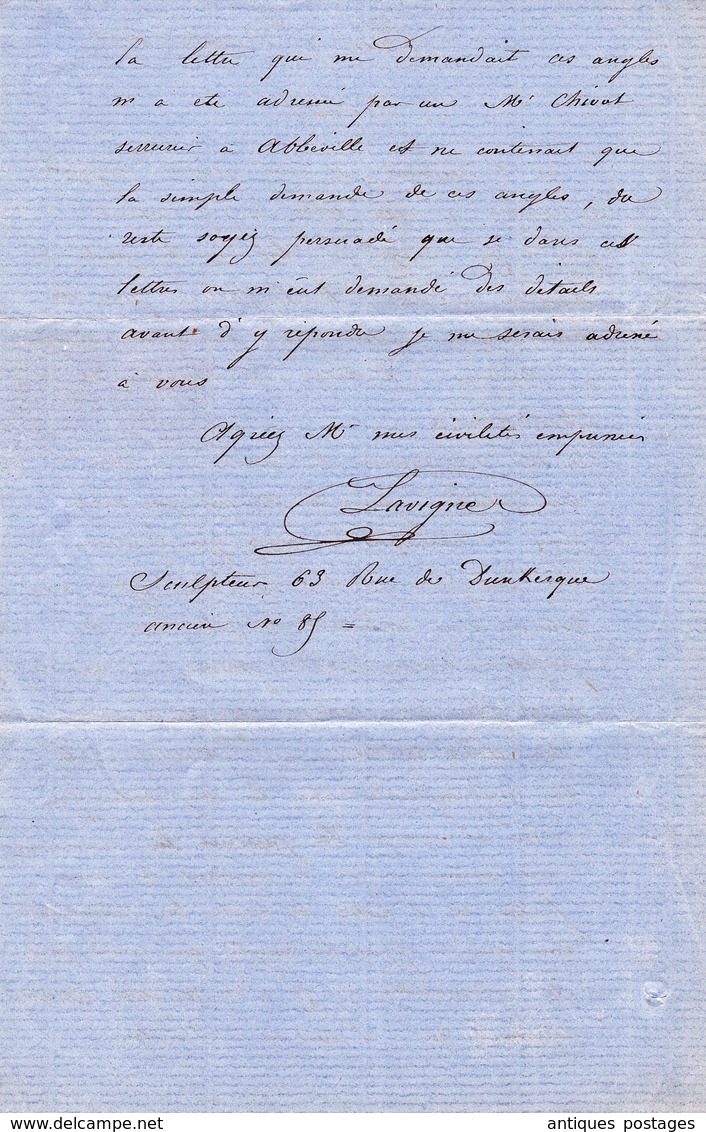 la lettre qui me demandait ces angles
m a ete adressé par un Mr Chivot
serrurier à Abbeville et ne contenait que
la simple demande de ces angles, du
reste soyez persuadé que si dans ces
lettres on m'eut demandé des détails
avant d'y repondre je me serais adressé
à vous
Agréez Mr mes civilités empressées
Lavigne
Sculpteur 63 Rue de Dunkerque
ancien No 85 =
delcampe.net
antiques postages